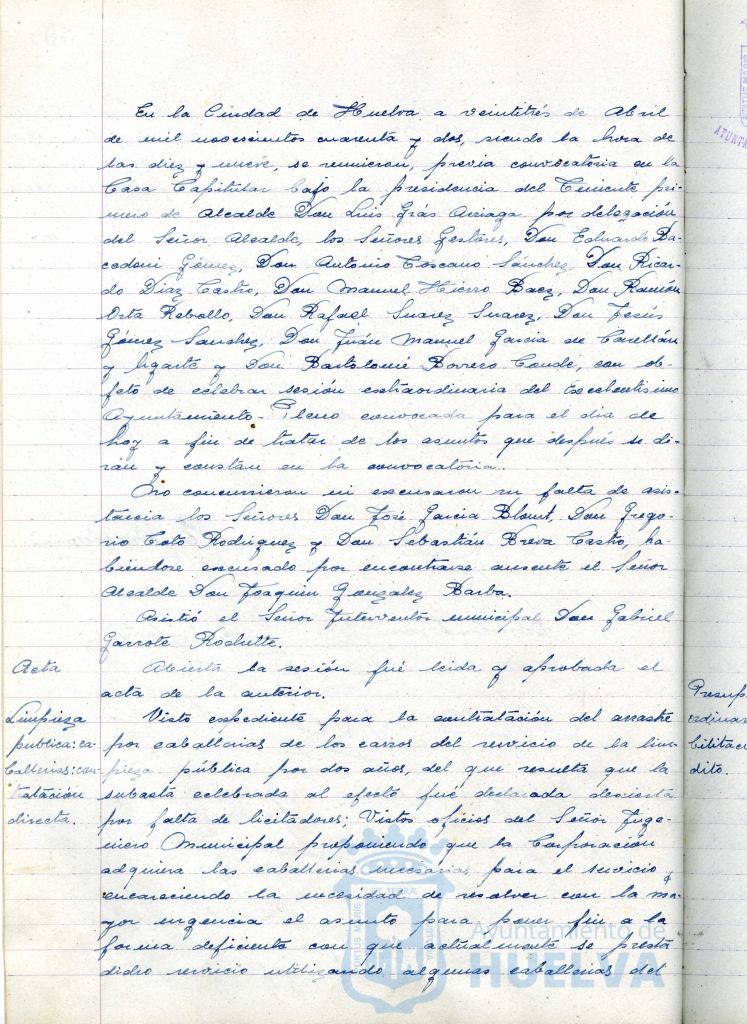 En la Ciudad de Huelva a veintitrés de Abril
de mil novecientos cuarenta y dos, siendo la hora de
las diez y nueve, se reunieron, previa convocatoria en la
Casa Capitular bajo la presidencia del Teniente pri-
mero de Alcalde Don Luis Grás Arriaga por delegación
del Señor Alcalde, los Señores Gestores, Don Eduardo Ba-
cedoni Gómez, Don Antonio Toscano Sánchez, Don Ricar-
do Diaz Castro, Don Manuel Hierro Baez, Don Ramón
Orta Rebollo, Don Rafael Suarez Suarez, Don Jesús
Gómez Sanchez, Don Juán Manuel Garcia de
y Ugarte y Don Bartolomé Borrero Conde, con ob-
jeto de celebrar sesión extraordinaria del Excelentisimo
Ayuntamiento-Pleno convocada para el dia de
hoy a fin de tratar de los asuntos que después se di-
rán y constan en la convocatoria.
No concurrieron ni excusaron su falta de asis-
tencia los Señores Don José Garcia Don Grego-
rio Toto Rodriguez y Don Sebastián Breva Castro, ha-
biéndose excusado por encontrarse ausente el Señor
Alcalde Don Joaquin Gonzalez Barba.
Asistió el Señor Interventor municipal Don Gabriel
Garrote Rochette.
Acta
Abierta la sesión fué leida y aprobada el
acta de la anterior.
Limpieza
publica: ca-
ballerias: con-
tratación
directa.
Visto expediente para la contratación del arrastre
por caballerias de los carros del servicio de la lim-
pieza pública por dos años, del que resulta que la
subasta celebrada al efecto fué declarada desierta
por falta de licitadores; Vistos oficios del Señor Inge-
niero Municipal proponiendo que la Corporación
adquiera las caballerias necesarias para el servicio y
encareciendo la necesidad de resolver con la ma-
yor urgencia el asunto para poner fin a la
forma deficiente con que actualmente se presta
dicho servicio utilizando algunas caballerias del
Presup
ordinar
bilitac
dito.
Ayuntamiento de
HUELVA